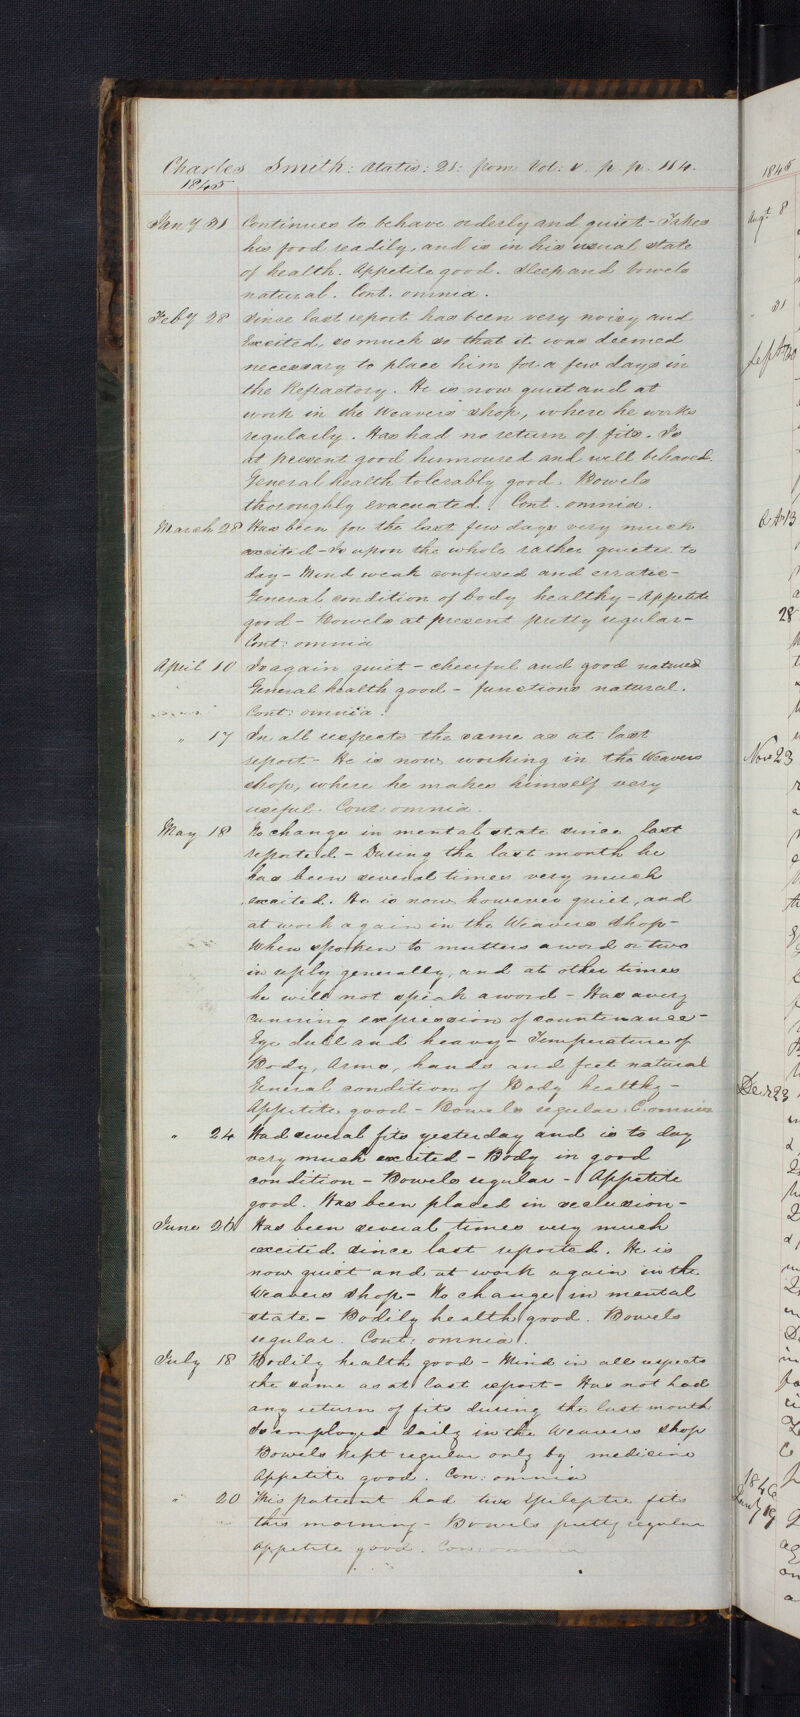 Charles Smith: Ætatis: 21: from Vol: V. p. p. 114.
1845
Jany 31 Continues to behave orderly and quiet - Takes
his food readily, and is in his usual state
of health. Appetite good. Sleep and bowels
natural. Cont. omnia.
Feby 28 Since last report has been very noisy and
Excited, so much so that it was deemed
necessary to place him for a few days in
the Refractory. He is now quiet and at
work in the Weavers' shop, where he works
regularly. Has had no return of fits. Is
at present good humoured and well behaved.
General health tolerably good. Bowels
thoroughly evacuated. Cont. omnia.
March 28 Has been for the last few days very much
excited - Is upon the whole rather quieter to
day - Mind weak confused and erratic -
General condition of body healthy - Appetite
good - Bowels at present pretty regular -
Cont: omnia
April 10 Is again quiet - cheerful and good natured
General health good - functions natural.
Cont: omnia.
" 17 In all respects the same as at last
report - He is now working in the Weavers
shop, where he makes himself very
useful. Cont: omnia.
May 18 No change in mental state since last
reported - During the last month he
has been several times very much
excited. He is now however quiet, and
at work again in the Weavers shop -
When spoken to mutters a word or two
in reply generally, and at other times
he will not speak a word - Has a very
cunning expression of countenance -
Eye dull and heavy - Temperature of
Body, Arms, hands and feet natural
General condition of Body healthy -
Appetite good - Bowels regular. C. omnia
" 24 Had several fits yesterday and is to day
very much excited - Body in good
condition - Bowels regular - Appetite
good. Has been placed in seclusion -
June 26 Has been several times very much
excited since last reported. He is
now quiet and at work again in the
Weavers shop - No change in mental
state - Bodily health good. Bowels
regular. Cont: omnia.
July 18 Bodily health good - Mind in all respects
the same as at last report - Has not had
any return of fits during the last month
Is employed daily in the Weavers shop
Bowels kept regular only by medicine
Appetite good. Con: omnia
" 20 This patient had two Epileptic fits
this morning - Bowels pretty regular
Appetite good. Con: omnia
1845
Augt 8
" 31
Octr 13
28
Novr 23
Decr 23
1846
Jany 19